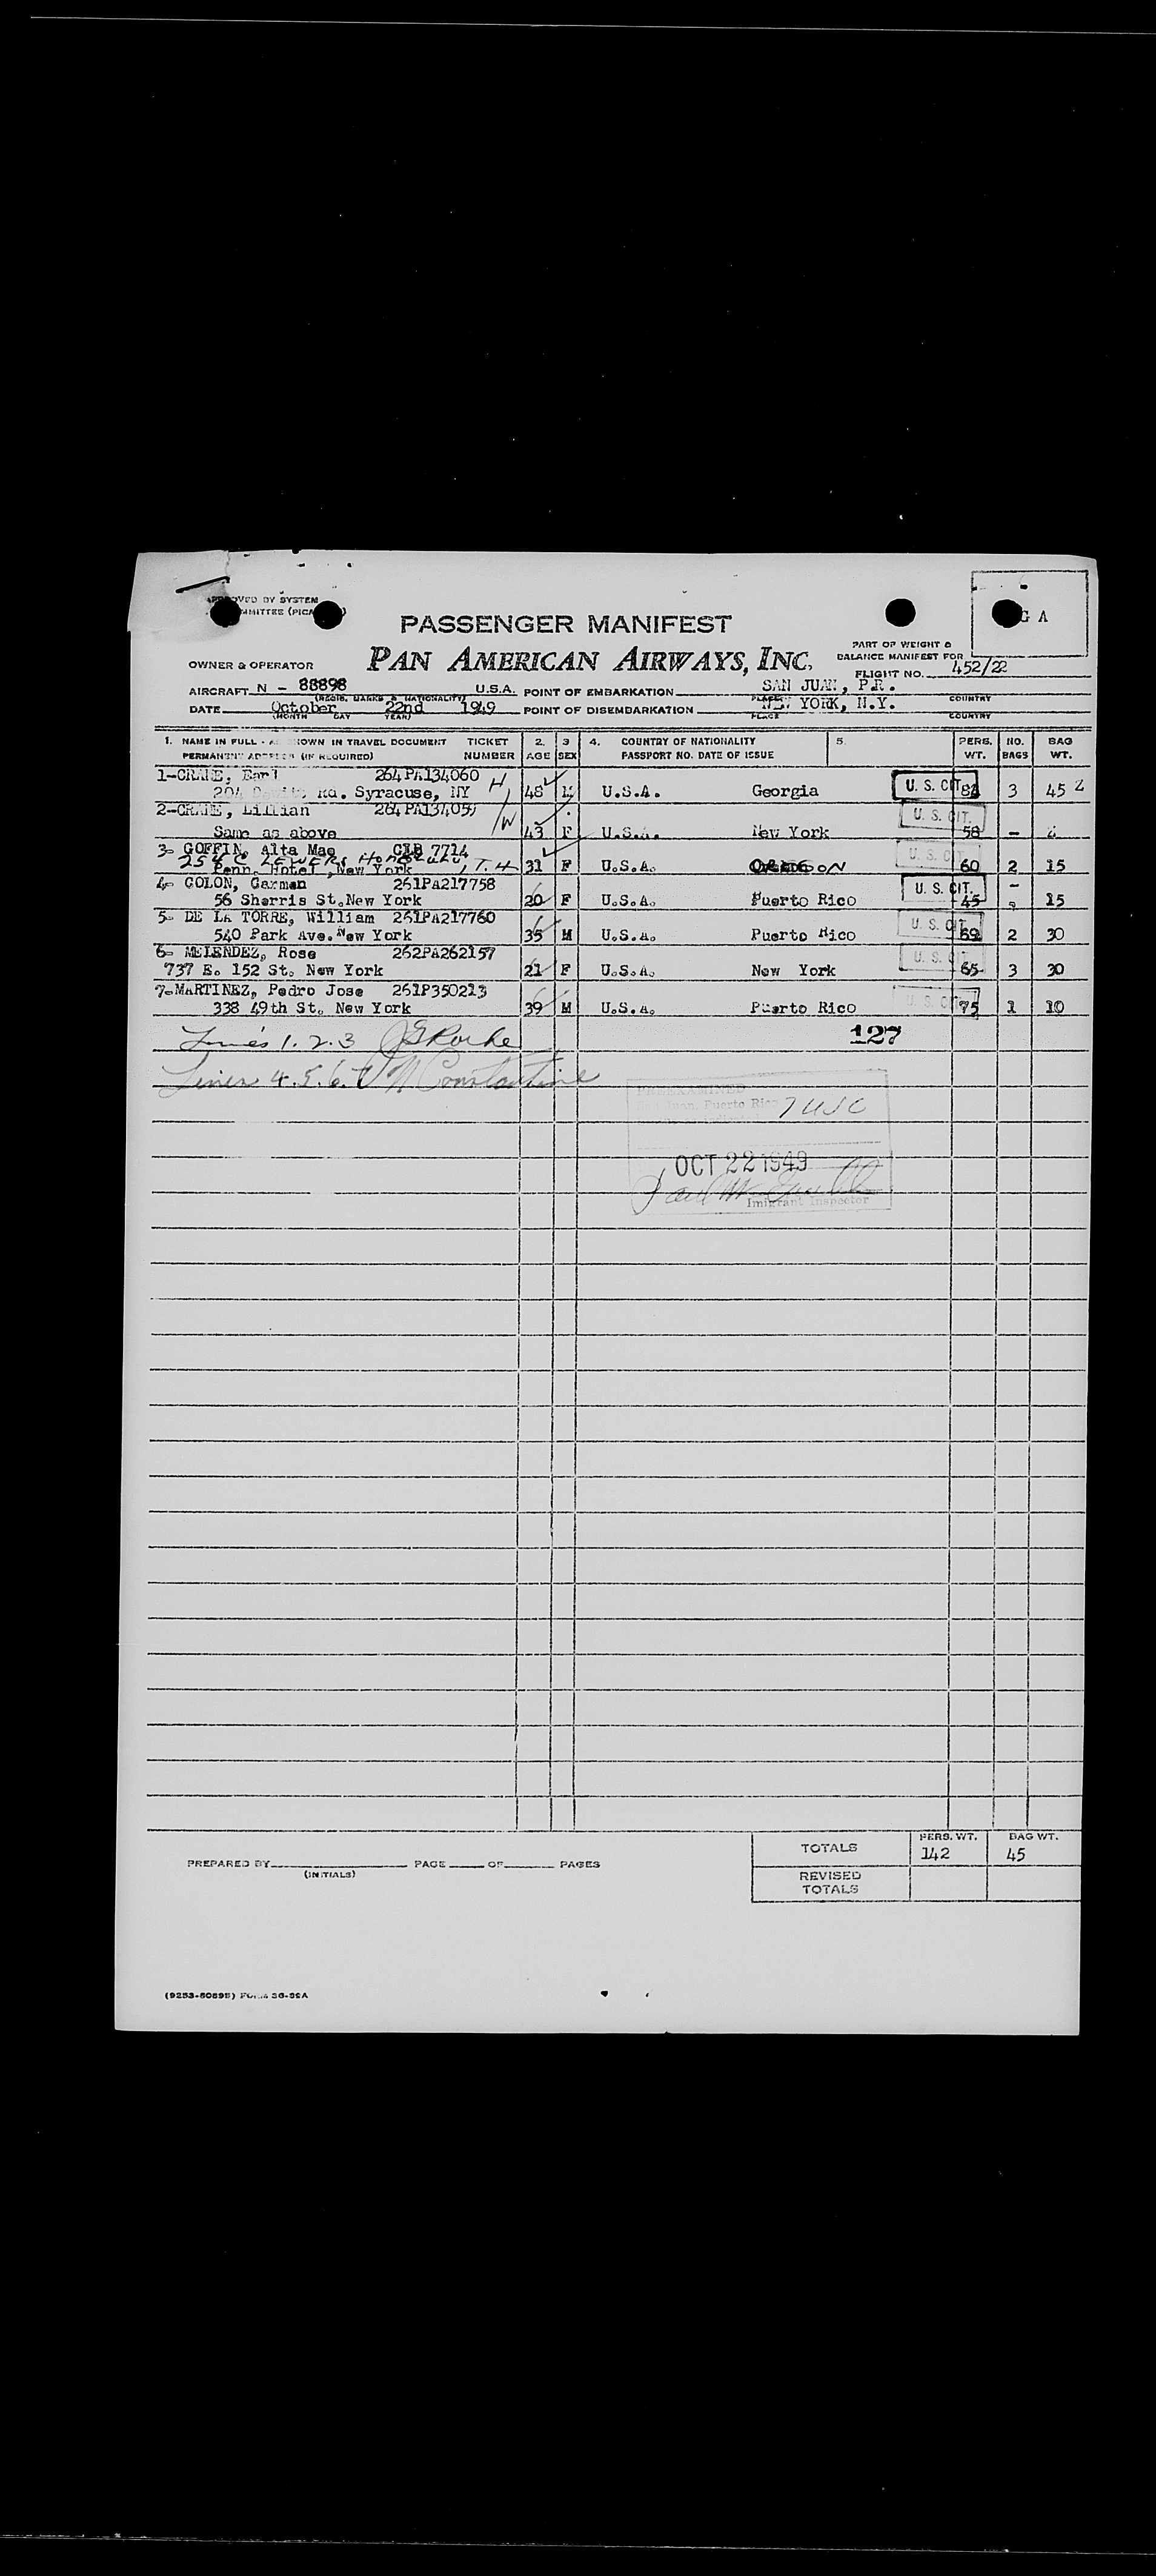 APPROVED BY SYSTEM
COMMITTEE (PICA
G A
PASSENGER MANIFEST
PAN AMERICAN AIRWAYS, INC.
PART OF WEIGHT &
BALANCE MANIFEST FOR
OWNER & OPERATOR
FLIGHT NO. 452/22
AIRCRAFT N - 88898 U.S.A. POINT OF EMBARKATION SAN JUAN, P.R.
(REGIS. MARKS & NATIONALITY) PLACE COUNTRY
DATE October 22nd 1949 POINT OF DISEMBARKATION NEW YORK, N.Y.
(MONTH DAY YEAR) PLACE COUNTRY
1. NAME IN FULL - AS SHOWN IN TRAVEL DOCUMENT TICKET 2. 3 4. COUNTRY OF NATIONALITY 5. PERS. NO. BAG
PERMANENT ADDRESS (IF REQUIRED) NUMBER AGE SEX PASSPORT NO. DATE OF ISSUE WT. BAGS WT.
1-CRANE, Earl 264PA134060 H
Rd. Syracuse, NY 48 M U.S.A. Georgia U. S. CIT. 3 45
2-CRANE, Lillian 264PA134059 W U. S. CIT.
Same as above 43 F U.S.A. New York 58 -
3- GOFFIN, Alta Mae 7714
254 C LEWERS HONOLULU, T.H
Penn. Hotel, New York 31 F U.S.A. OREGON U. S. CIT 60 2 15
4- COLON, Carmen 261PA217758 U. S. CIT. -
56 Sherris St. New York 20 F U.S.A. Puerto Rico 45 15
5- DE LA TORRE, William 261PA217760 U. S. CIT
540 Park Ave. New York 35 M U.S.A. Puerto Rico 69 2 30
6- MELENDEZ, Rose 262PA262157 U. S. CIT
737 E. 152 St. New York 21 F U.S.A. New York 65 3 30
7-MARTINEZ, Pedro Jose 261P350213 U. S. CIT
338 49th St. New York 39 M U.S.A. Puerto Rico 75 1 10
Lines 1. 2. 3 JG Rourke 127
Lines 4. 5. 6. 7 Constantine
PREEXAMINED
San Juan, Puerto Rico 7 USC
OCT 22 1949
Imigrant Inspector
TOTALS PERS. WT. 142 BAG WT. 45
PREPARED BY PAGE OF PAGES
(INITIALS)
REVISED
TOTALS
FORM 36-39A